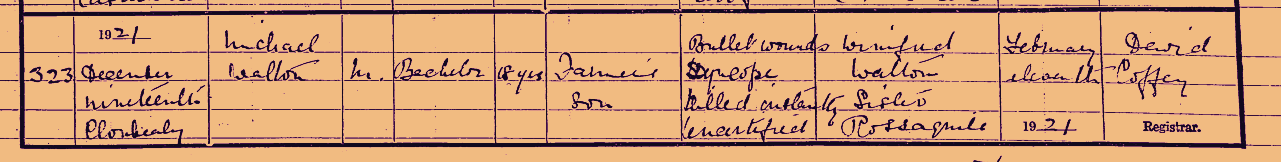 1921 Michael Bullet wounds Winifred February David
323 December Walton M. Bachelor 18 yrs Farmer's Syncope Walton eleventh Coffey
nineteenth son killed instantly Sister
uncertified 1921 Registrar.